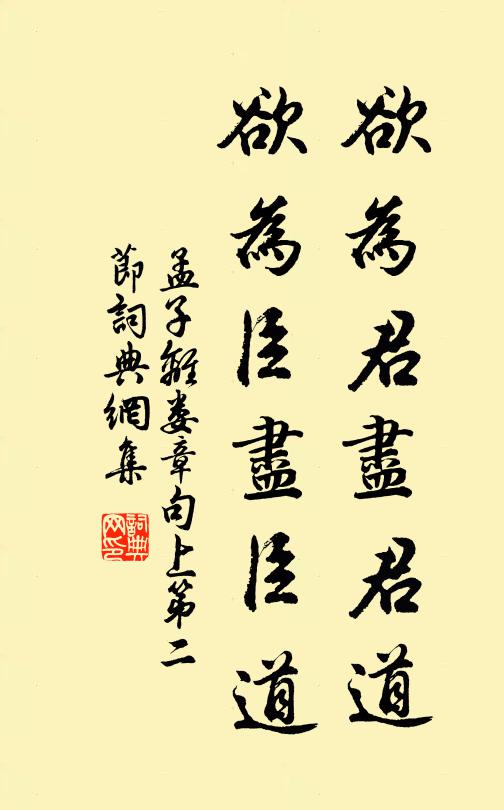 欲為君盡君道
欲為臣盡臣道
孟子離婁章句上第二
節詞典網集
詞典
网印